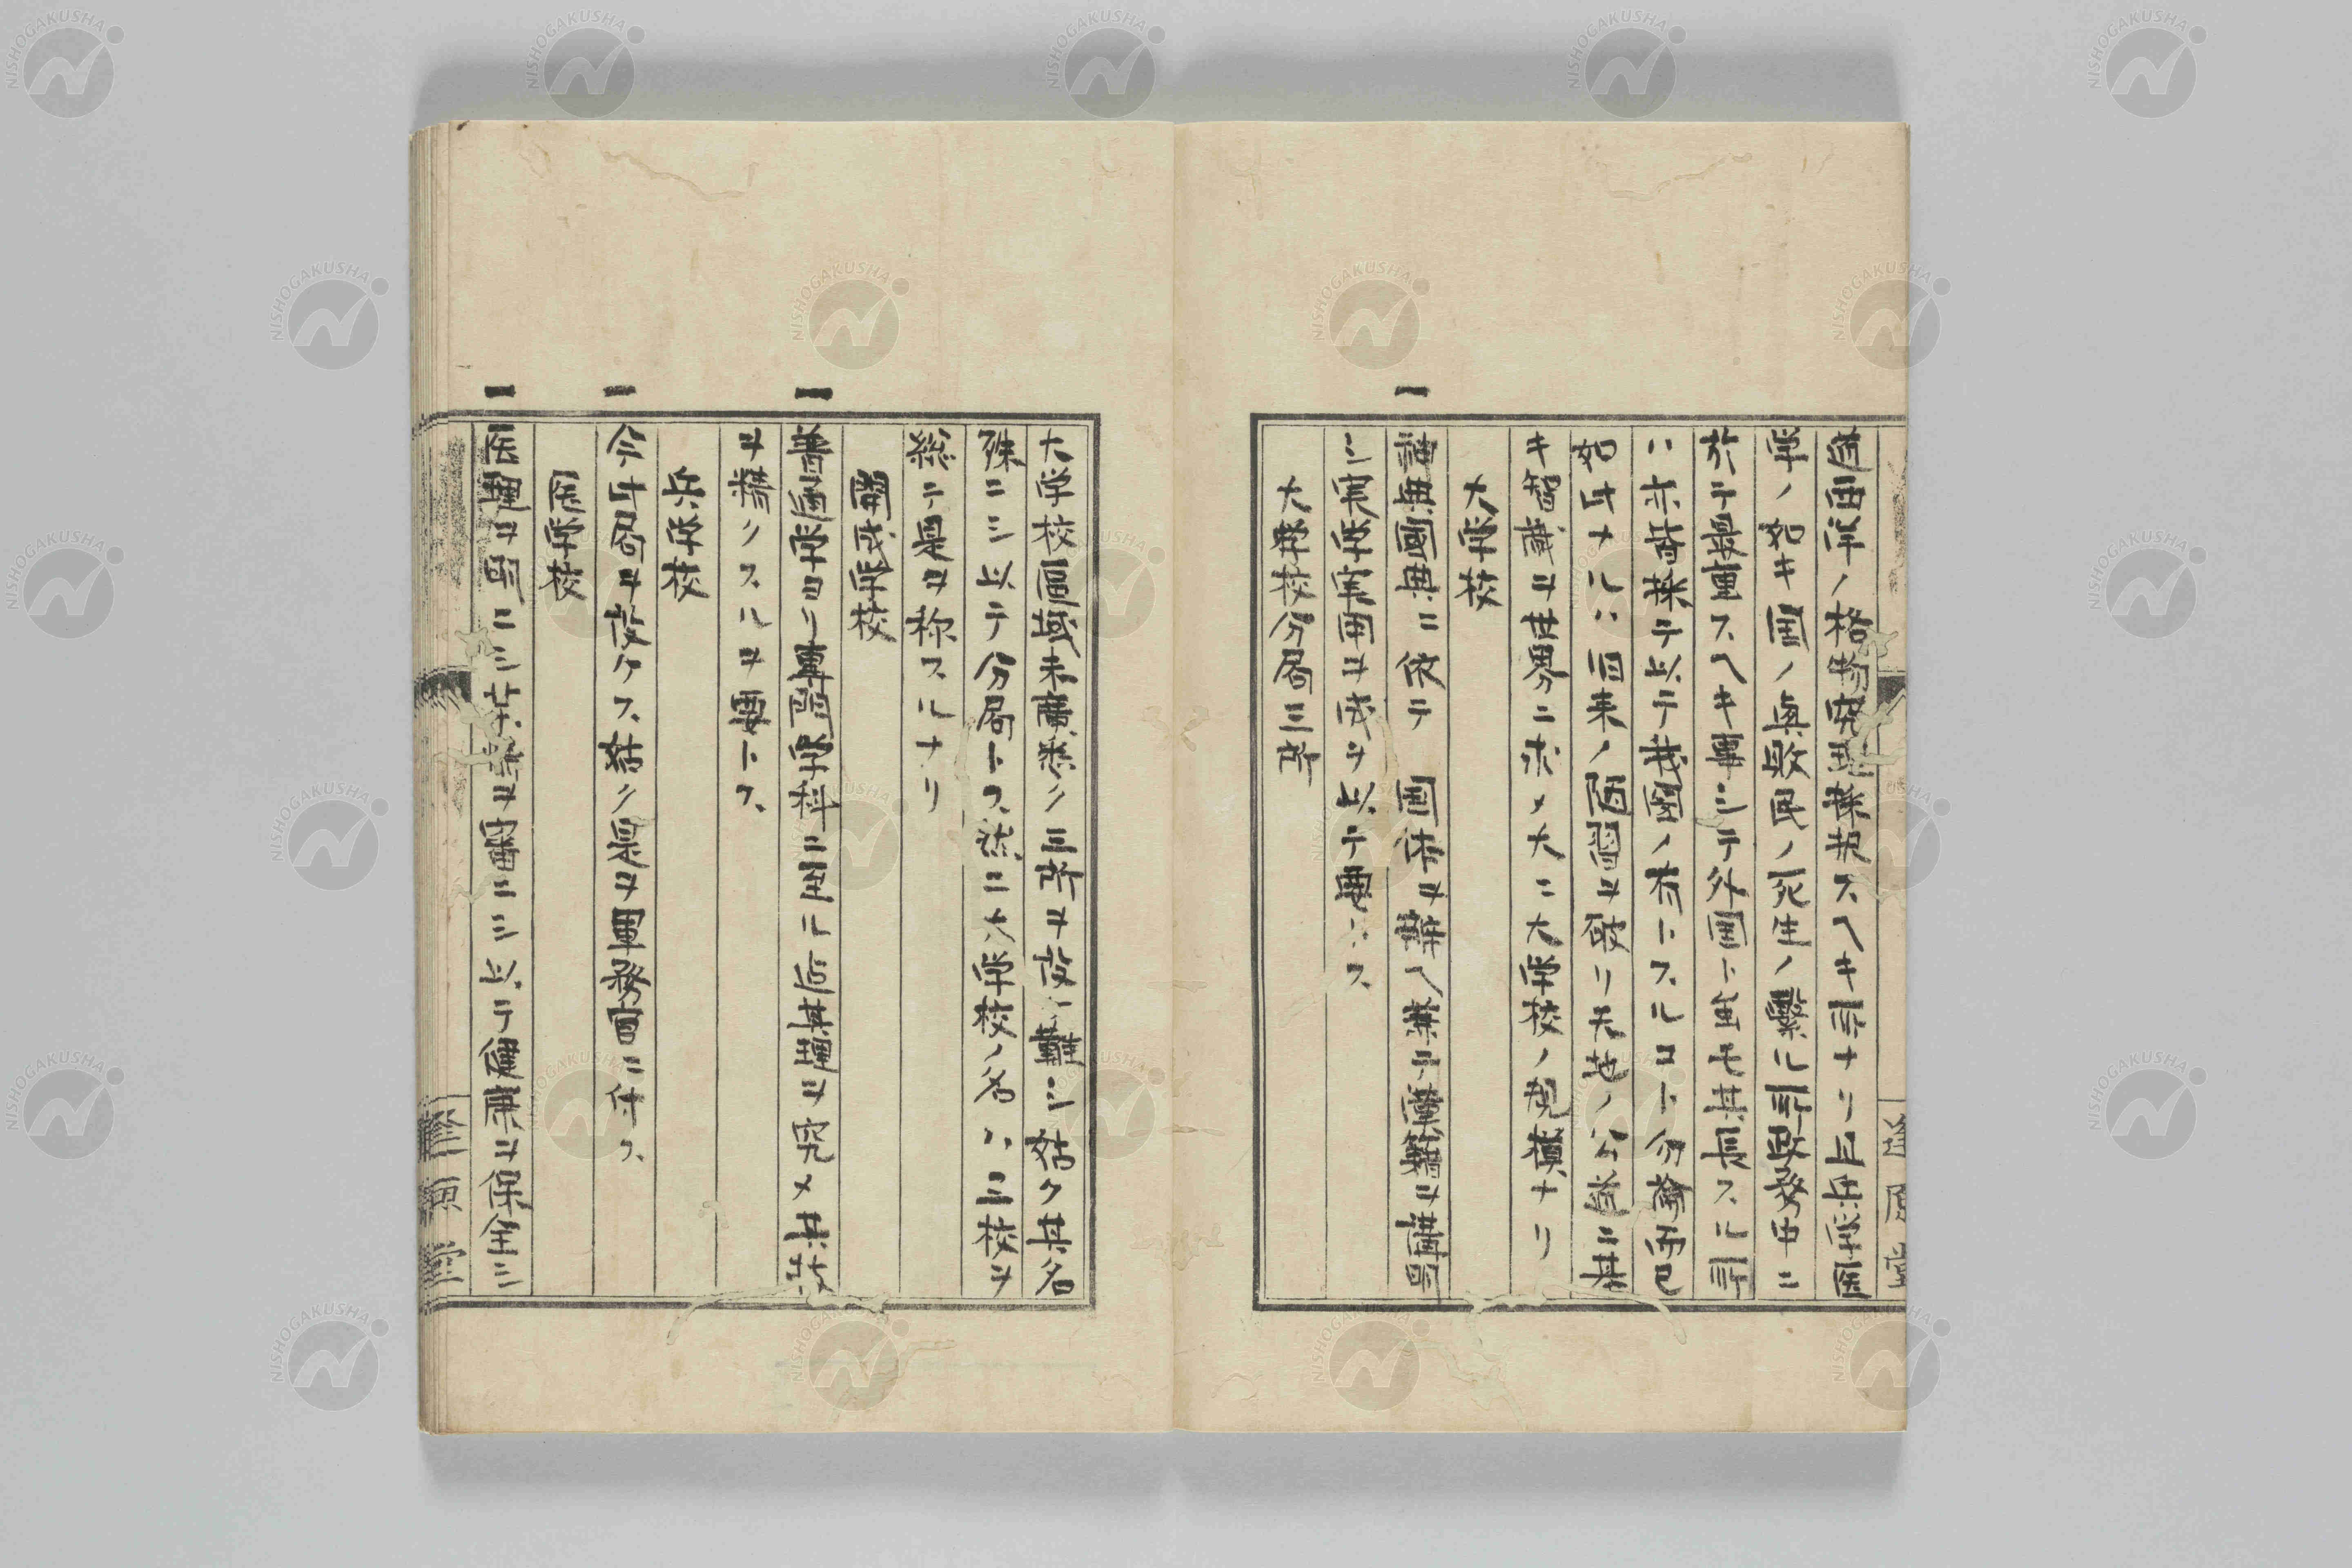 学ノ如キ国ノ興敗民ノ死生ノ繋ル所政務中ニ
於テ最重スヘキ事ニシテ外国ト雖モ其長スル所
ハ亦皆採テ以テ我国ノ有トスルコト勿論而已
如此ナレハ旧来ノ陋習ヲ破リ天地ノ公道ニ基
キ智識ヲ世界ニ求メ大ニ大学校ノ規模ナリ
大学校
一 神典國典ニ依テ 国体ヲ辨ヘ兼テ漢籍ヲ講明
シ実学実用ヲ成ヲ以テ要トス
大学校分局三所
大学校區域未廣悉ク三所ヲ設ケ難シ姑ク其名
殊ニシ以テ分局トス然ニ大学校ノ名ハ三校ヲ
総テ是ヲ称スルナリ
開成学校
一 普通学ヨリ専門学科ニ至ル迄其理ヲ究メ其技
ヲ精クスルヲ要トス
兵学校
一 今此局ヲ設ケス姑ク是ヲ軍務官ニ付ス
医学校
一 医理ヲ明ニシ薬性ヲ審ニシ以テ健康ヲ保全シ